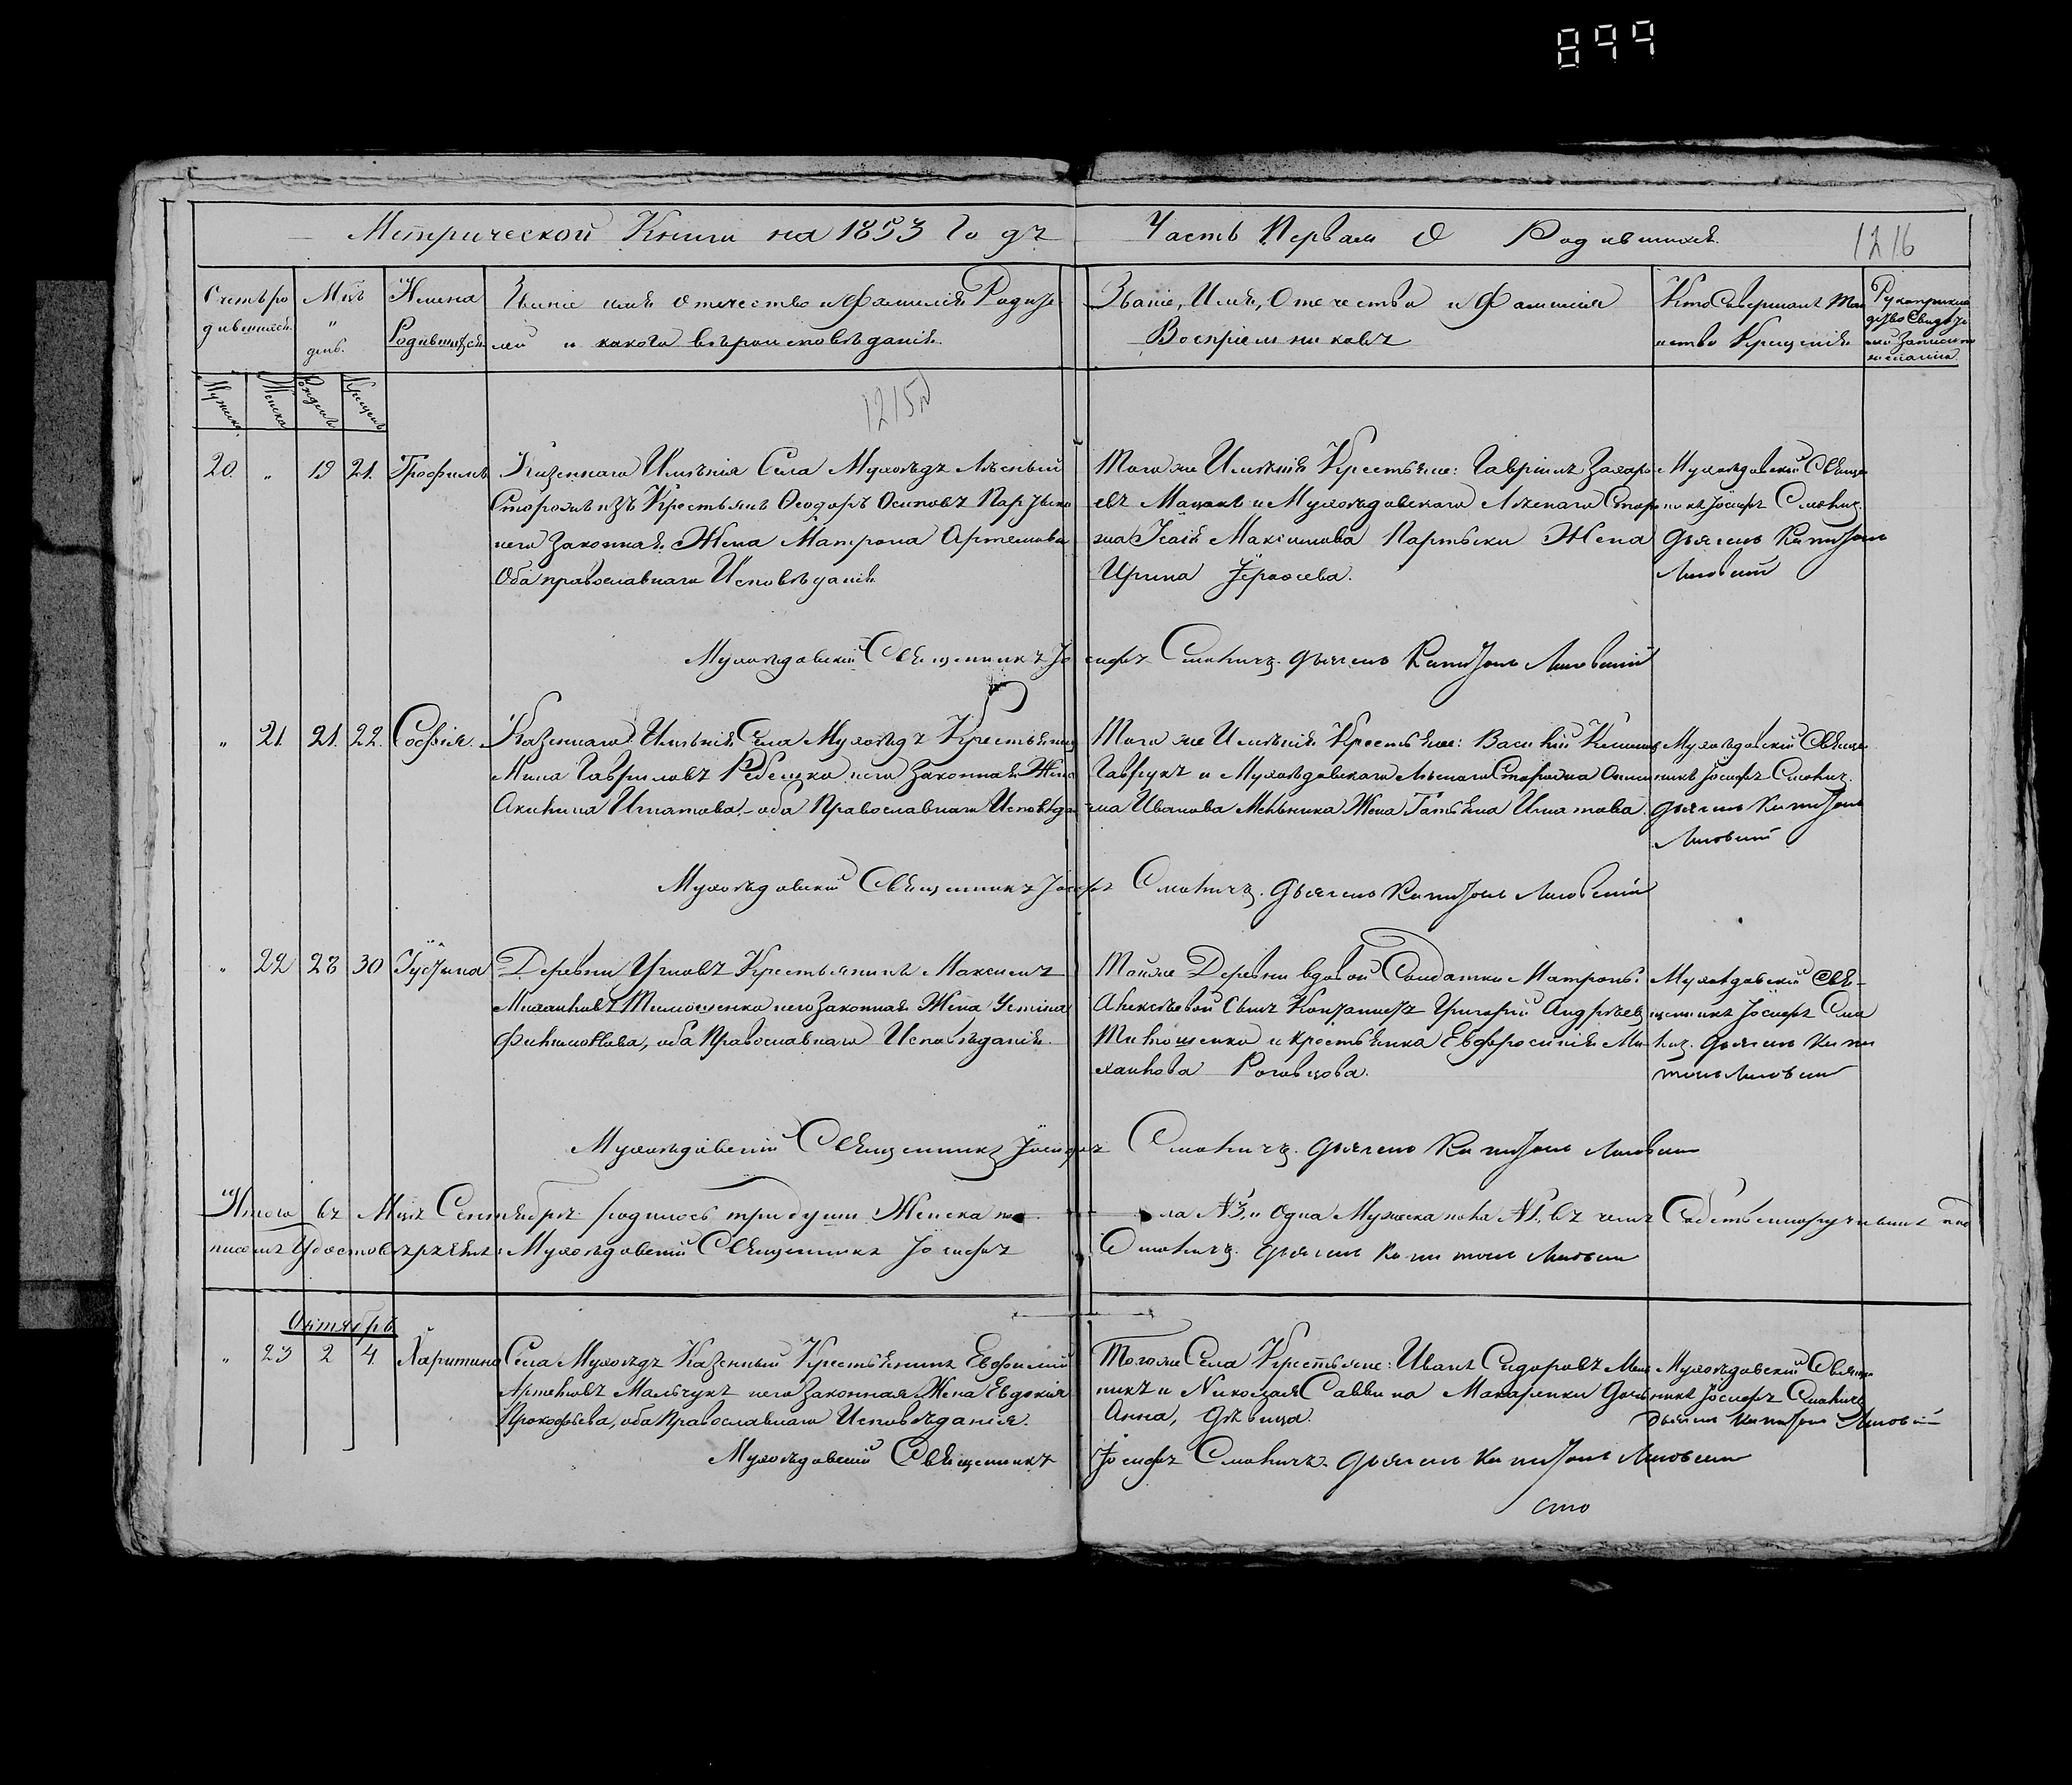 899
Метрической Книги на 1853 Годъ
Часть Первая О Родившихся.
1216
Счетъ родившихся.
Мцъ и день.
Имена Родившихся
Званіе имя отечество и Фамилія Родителей и какого вѣроисповѣданія.
Званіе, Имя, Отечество и Фамилія Воспріемниковъ
Кто Совершалъ Таинство Крещенія
Рукоприкладство Свидѣтелей записи по желанію
Мужска
Женска
Рожденія
Крещенія
1215
20. " 19 21. Трофимъ
Казеннаго Имѣнія Села Мухоѣдъ Лѣсный
Сторожъ изъ Крестьянъ Ѳеодоръ Осиповъ
него законная Жена Матрона Артемова
Оба православнаго Исповѣданія
Того же Имѣнія Крестьяне: Гавріилъ Захаро
евъ Мацакъ и Мухоѣдовскаго Лѣснаго Сторо
жа Ісаія Максимова Жена
Ирина
Мухоѣдовскій Священ
никъ Іосифъ Смолич.
дьячекъ Капитонъ
Лисовский
Мухоѣдовскій Священникъ Іосифъ Смоличъ. дьячекъ Капитонъ Лисовский
" 21. 21. 22. Софія.
Казеннаго Имѣнія Села Мухоѣдъ Крестьянинъ
Гавриловъ Ребешко него Законная Жена
Акилина Игнатова, оба Православнаго Исповѣдан
Того же Имѣнія Крестьяне: Василій
Гаврукъ и Мухоѣдовскаго Лѣснаго Сторожа
Иванова Мельника Жена Татьяна Игнатова.
Мухоѣдовскій Священ
никъ Іосифъ Смолич.
дьячекъ Капитонъ
Лисовский
Мухоѣдовскій Священникъ Іосифъ Смоличъ. дьячекъ Капитонъ Лисовский
" 22 28 30 Іустина
Деревни Угловъ Крестьянинъ Максимъ
Михаиловъ Тимошенко него Законная Жена Устина
Филимонова, оба Православнаго Исповѣданія.
Той же Деревни вдовой Солдатки Матроны
Алексѣевой Сынъ Григорій Андрѣевъ
Тимошенко и крестьянка Евфросинія Ми
хаилова Роговцова.
Мухоѣдовскій Свя-
щенникъ Іосифъ Смо
лич. дьячекъ Капи
тонъ Лисовский
Мухоѣдовскій Священникъ Іосифъ Смоличъ. дьячекъ Капитонъ Лисовский
Итого въ Мцѣ Сентябрѣ родилось три души Женска по
ла №3, и одна Мужеска пола №1. въ чемъ Собственноручнымъ под
писомъ Удостовѣряемъ: Мухоѣдовскій Священникъ Іосифъ
Смоличъ. дьячекъ Капитонъ Лисовский
Октябрь
" 23 2 4 Харитина
Села Мухоѣдъ Казенный Крестьянинъ Евфимій
Артемовъ Мальчукъ него Законная Жена Евдокія
Прокофьева, оба Православнаго Исповѣданія.
Того же Села Крестьяне: Иванъ Сидоровъ Мель
никъ и Николая Саввина Макаренки Дочь
Анна, дѣвица.
Мухоѣдовскій Священ
никъ Іосифъ Смоличъ
дьячекъ Капитонъ Лисовский
Мухоѣдовскій Священникъ Іосифъ Смоличъ. дьячекъ Капитонъ Лисовский
сто